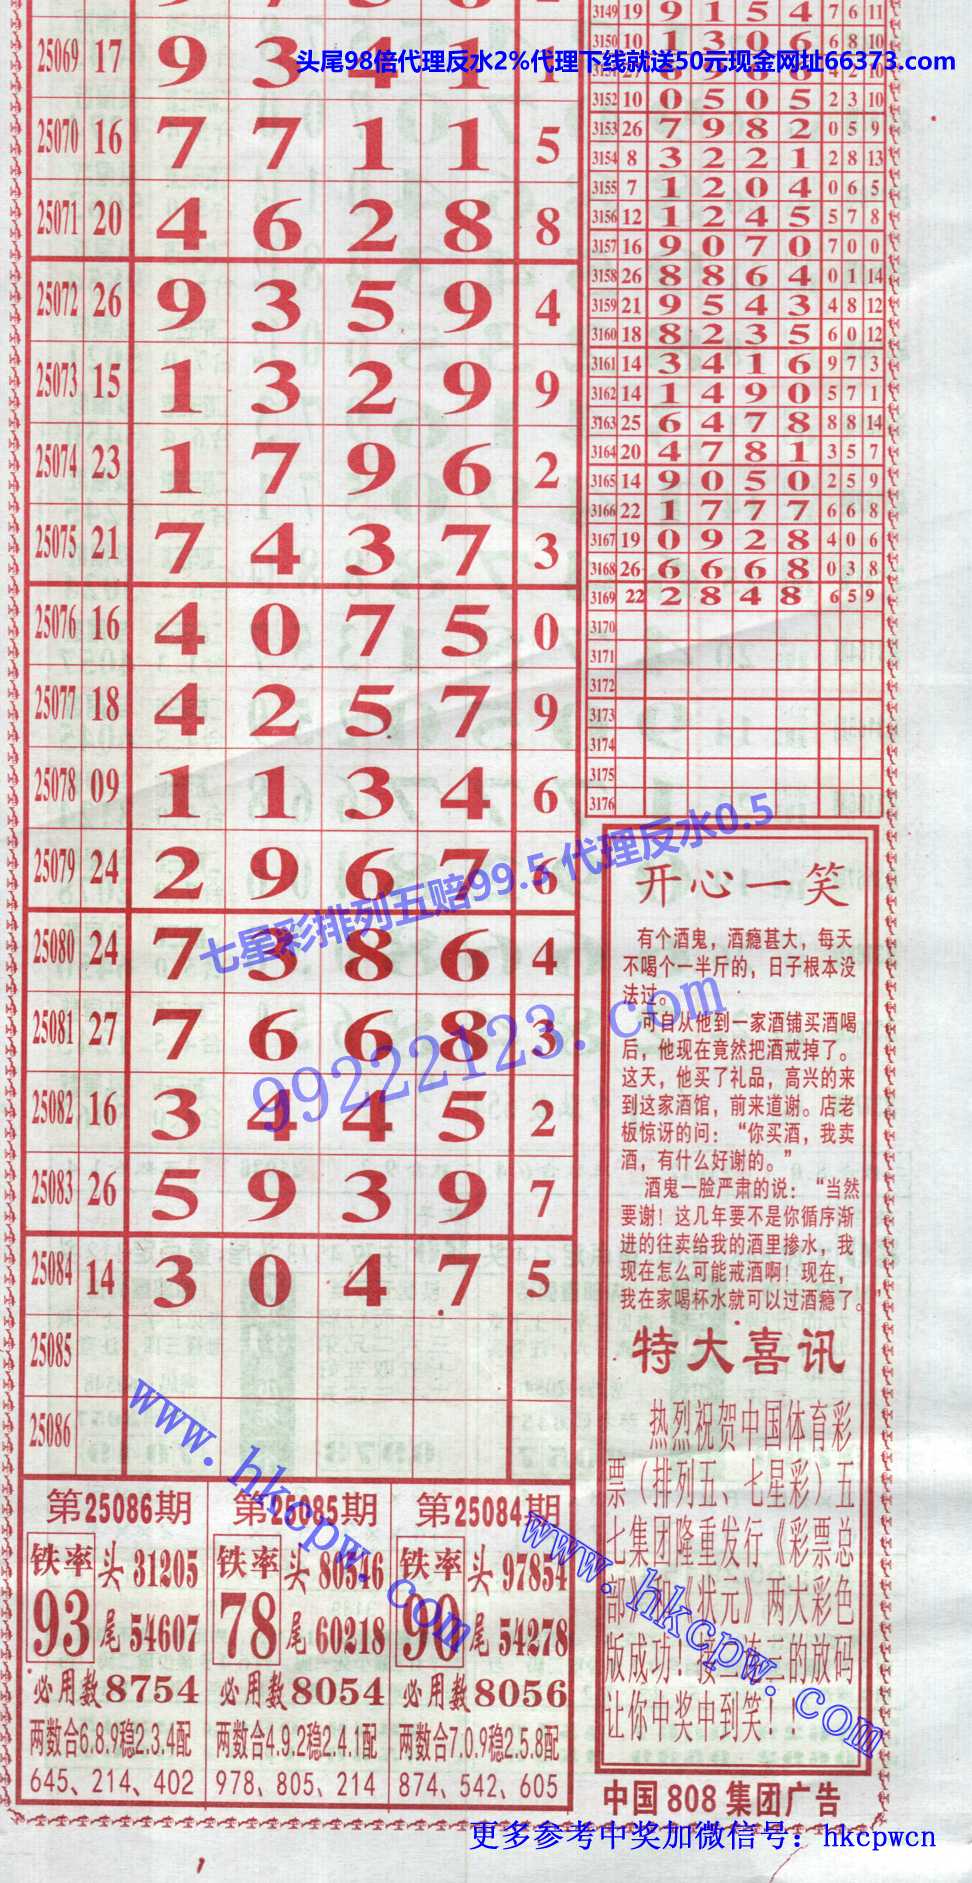 头尾98倍代理反水2%代理下线就送50元现金网址66373.com
25069 17 9 3 4 1 1
25070 16 7 7 1 1 5
25071 20 4 6 2 8 8
25072 26 9 3 5 9 4
25073 15 1 3 2 9 9
25074 23 1 7 9 6 2
25075 21 7 4 3 7 3
25076 16 4 0 7 5 0
25077 18 4 2 5 7 9
25078 09 1 1 3 4 6
25079 24 2 9 6 7 6
25080 24 7 3 8 6 4
25081 27 7 6 6 8 3
25082 16 3 4 4 5 2
25083 26 5 9 3 9 7
25084 14 3 0 4 7 5
25085
25086
3149 19 9 1 5 4 7 6 11
3150 10 1 3 0 6 6 8 10
3152 10 0 5 0 5 2 3 10
3153 26 7 9 8 2 0 5 9
3154 8 3 2 2 1 2 8 13
3155 7 1 2 0 4 0 6 5
3156 12 1 2 4 5 5 7 8
3157 16 9 0 7 0 7 0 0
3158 26 8 8 6 4 0 1 14
3159 21 9 5 4 3 4 8 12
3160 18 8 2 3 5 6 0 12
3161 14 3 4 1 6 9 7 3
3162 14 1 4 9 0 5 7 1
3163 25 6 4 7 8 8 8 14
3164 20 4 7 8 1 3 5 7
3165 14 9 0 5 0 2 5 9
3166 22 1 7 7 7 6 6 8
3167 19 0 9 2 8 4 0 6
3168 26 6 6 6 8 0 3 8
3169 22 2 8 4 8 6 5 9
3170
3171
3172
3173
3174
3175
3176
七星彩排列五赔99.5 代理反水0.5
99222123.com
开心一笑
有个酒鬼，酒瘾甚大，每天
不喝个一半斤的，日子根本没
法过。
可自从他到一家酒铺买酒喝
后，他现在竟然把酒戒掉了。
这天，他买了礼品，高兴的来
到这家酒馆，前来道谢。店老
板惊讶的问：“你买酒，我卖
酒，有什么好谢的。”
酒鬼一脸严肃的说：“当然
要谢！这几年要不是你循序渐
进的往卖给我的酒里掺水，我
现在怎么可能戒酒啊！现在，
我在家喝杯水就可以过酒瘾了。”
特大喜讯
热烈祝贺中国体育彩
票（排列五、七星彩）五
七集团隆重发行《彩票总
部》《状元》两大彩色
版成功！的放码
让你中奖中到笑！！
中国808集团广告
第25086期
铁率 93
头 31205
尾 54607
必用数8754
两数合6.8.9稳2.3.4配
645、214、402
第25085期
铁率 78
头 80546
尾 60218
必用数8054
两数合4.9.2稳2.4.1配
978、805、214
第25084期
铁率 90
头 97854
尾 54278
必用数8056
两数合7.0.9稳2.5.8配
874、542、605
www.hkcpw.com
www.hkcpw.com
更多参考中奖加微信号：hkcpwcn